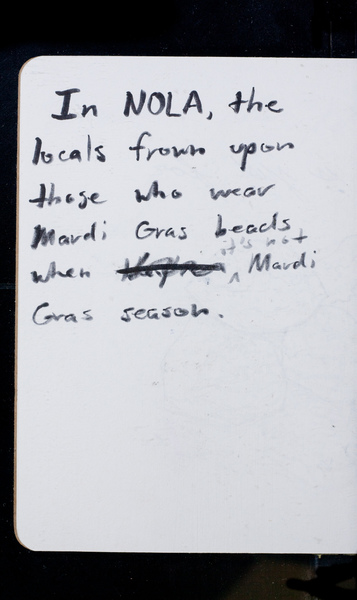 In NOLA, the
locals frown upon
those who wear
Mardi Gras beads
when it's not Mardi
Gras season.